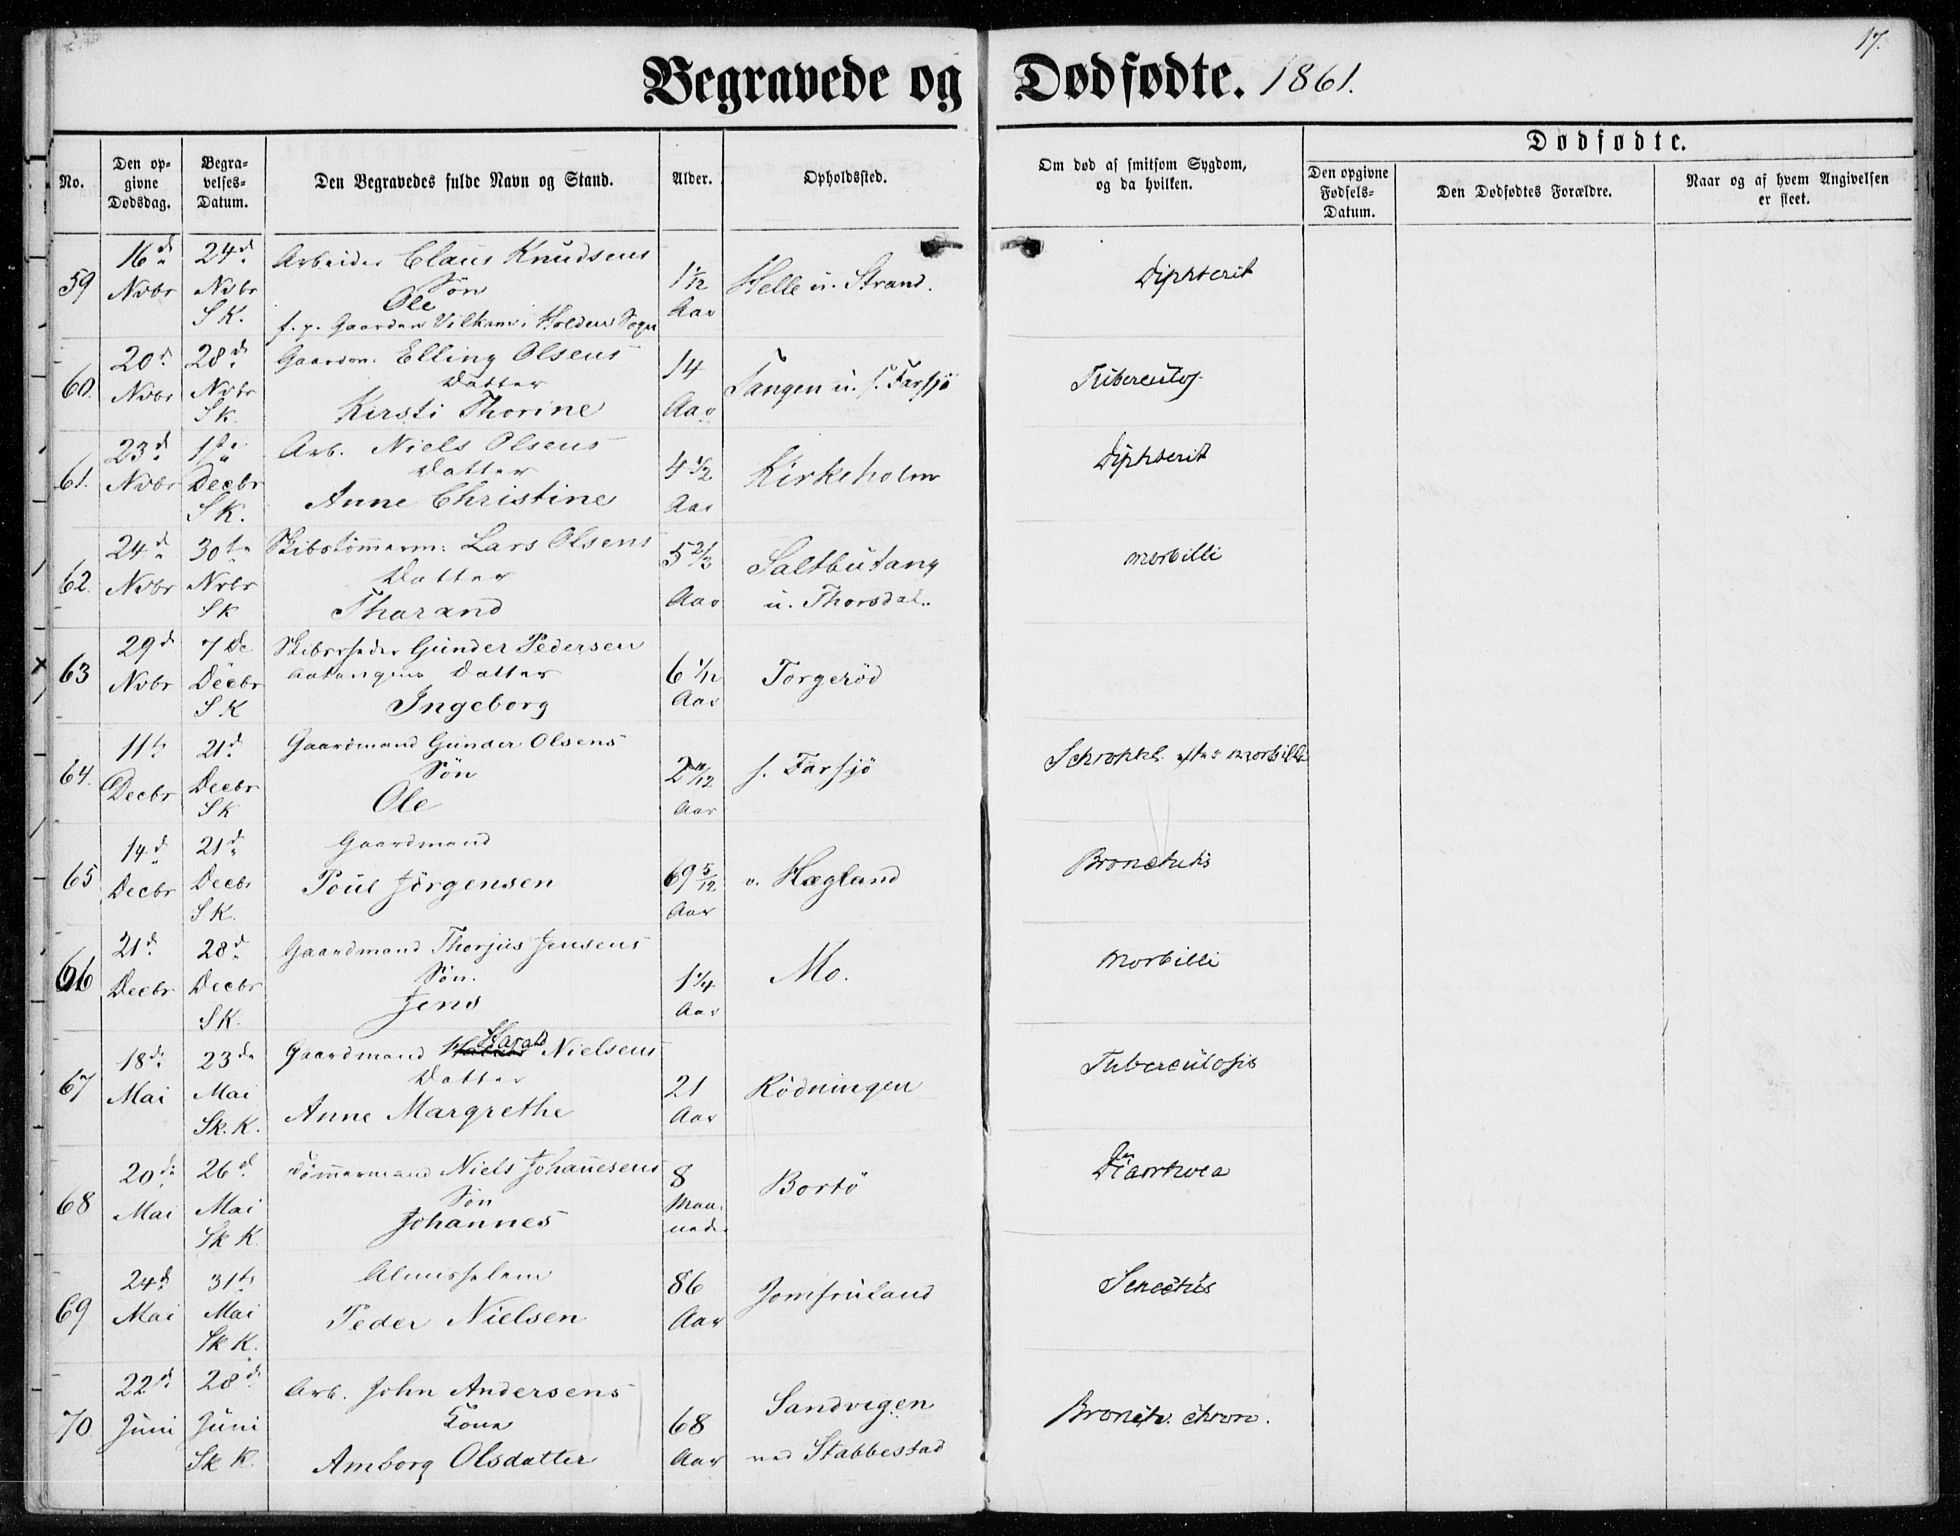 17.
Begravede og Dødfødte. 1861.
No.
Den op-
givne
Dødsdag.
Begra-
velses-
Datum.
Den Begravedes fulde Navn og Stand.
Alder.
Opholdssted.
Om død af smitsom Sygdom,
og da hvilken.
Dødfødte.
Den opgivne
Fødsels-
Datum.
Den Dødfødtes Forældre.
Naar og af hvem Angivelsen
er skeet.
59
16d
Nvbr
24d
Nvbr
S K.
Arbeider Claus Knudsens
Søn
Ole
f. p. Gaarden Vilkam i Holden Sogn
1 1/12
Aar
Helle u. Strand.
Diphterit
60.
20d
Nvbr
28d
Nvbr
S K.
Gaardm. Elling Olsens
Datter
Kirsti Thorine
14
Aar
Tangen u. s. Farsjö
Tuberculos.
61.
23d
Nvbr
1ste
Decbr
S K.
Arb. Niels Olsens
Datter
Anne Christine
4 1/2
Aar
Kirkeholm
Diphterit
62.
24d
Nvbr
30te
Nvbr
S K
Skibstömmerm. Lars Olsens
Datter
Tharand
5 2/3
Aar
Saltbutang
u. Thorsdal.
morbilli
63
29d
Nvbr
7de
Decbr
S K
Skibsreder Gunder Pedersen
Datter
Ingeborg
6 1/12
Aar
Torgeröd
64.
11te
Decbr
21d
Decbr
S K
Gaardmand Gunder Olsens
Søn
Ole
2 11/12
Aar
s. Farsjö
Schrophl. efter morbilli
65
14d
Decbr
21d
Decbr
S K.
Gaardmand
Poul Jörgensen
69 5/12
Aar
v. Hægland
Bronchitis
66
21d
Decbr
28d
Decbr
S K.
Gaardmand Thorjus Jensens
Søn.
Jens
1 1/4
Aar
Mo.
Morbilli
67
18de
Mai
23de
Mai
Sk. K.
Gaardmand Harald Nielsens
Datter
Anne Margrethe
21
Aar
Rödningen
Tuberculosis
68
20de
Mai
26d
Mai
Sk K.
Tömmermand Niels Johanesens
Søn
Johannes
8
Maa-
neder
Bortö
Diarrhoea
69
24d
Mai
31te
Mai
Sk K.
Almisselem
Peder Nielsen
86
Aar
Jomfruland
Senectus
70
22d
Juni
28d
Juni
Sk K.
Arb. John Andersens
Kone
Amborg Olsdatter
68
Aar
Sandvigen
ved Stabbestad
Bronch. chron.